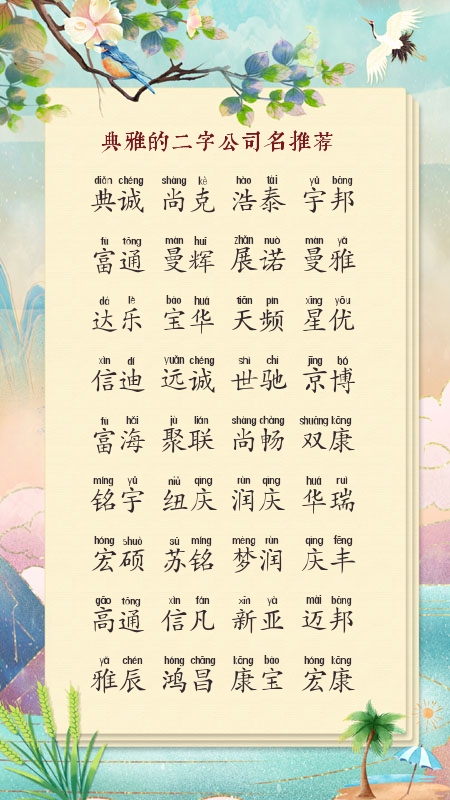 典雅的二字公司名推荐
diǎn chéng shàng kè hào tài yǔ bāng
典诚 尚克 浩泰 宇邦
fù tōng màn huī zhǎn nuò màn yǎ
富通 曼辉 展诺 曼雅
dá lè bǎo huá tiān pín xīng yōu
达乐 宝华 天频 星优
xìn dí yuǎn chéng shì chí jīng bó
信迪 远诚 世驰 京博
fù hǎi jù lián shàng chàng shuāng kāng
富海 聚联 尚畅 双康
míng yǔ niǔ qìng rùn qìng huá ruì
铭宇 纽庆 润庆 华瑞
hóng shuò sū míng mèng rùn qìng fēng
宏硕 苏铭 梦润 庆丰
gāo tōng xìn fán xīn yà mài bāng
高通 信凡 新亚 迈邦
yǎ chén hóng chāng kāng bǎo hóng kāng
雅辰 鸿昌 康宝 宏康